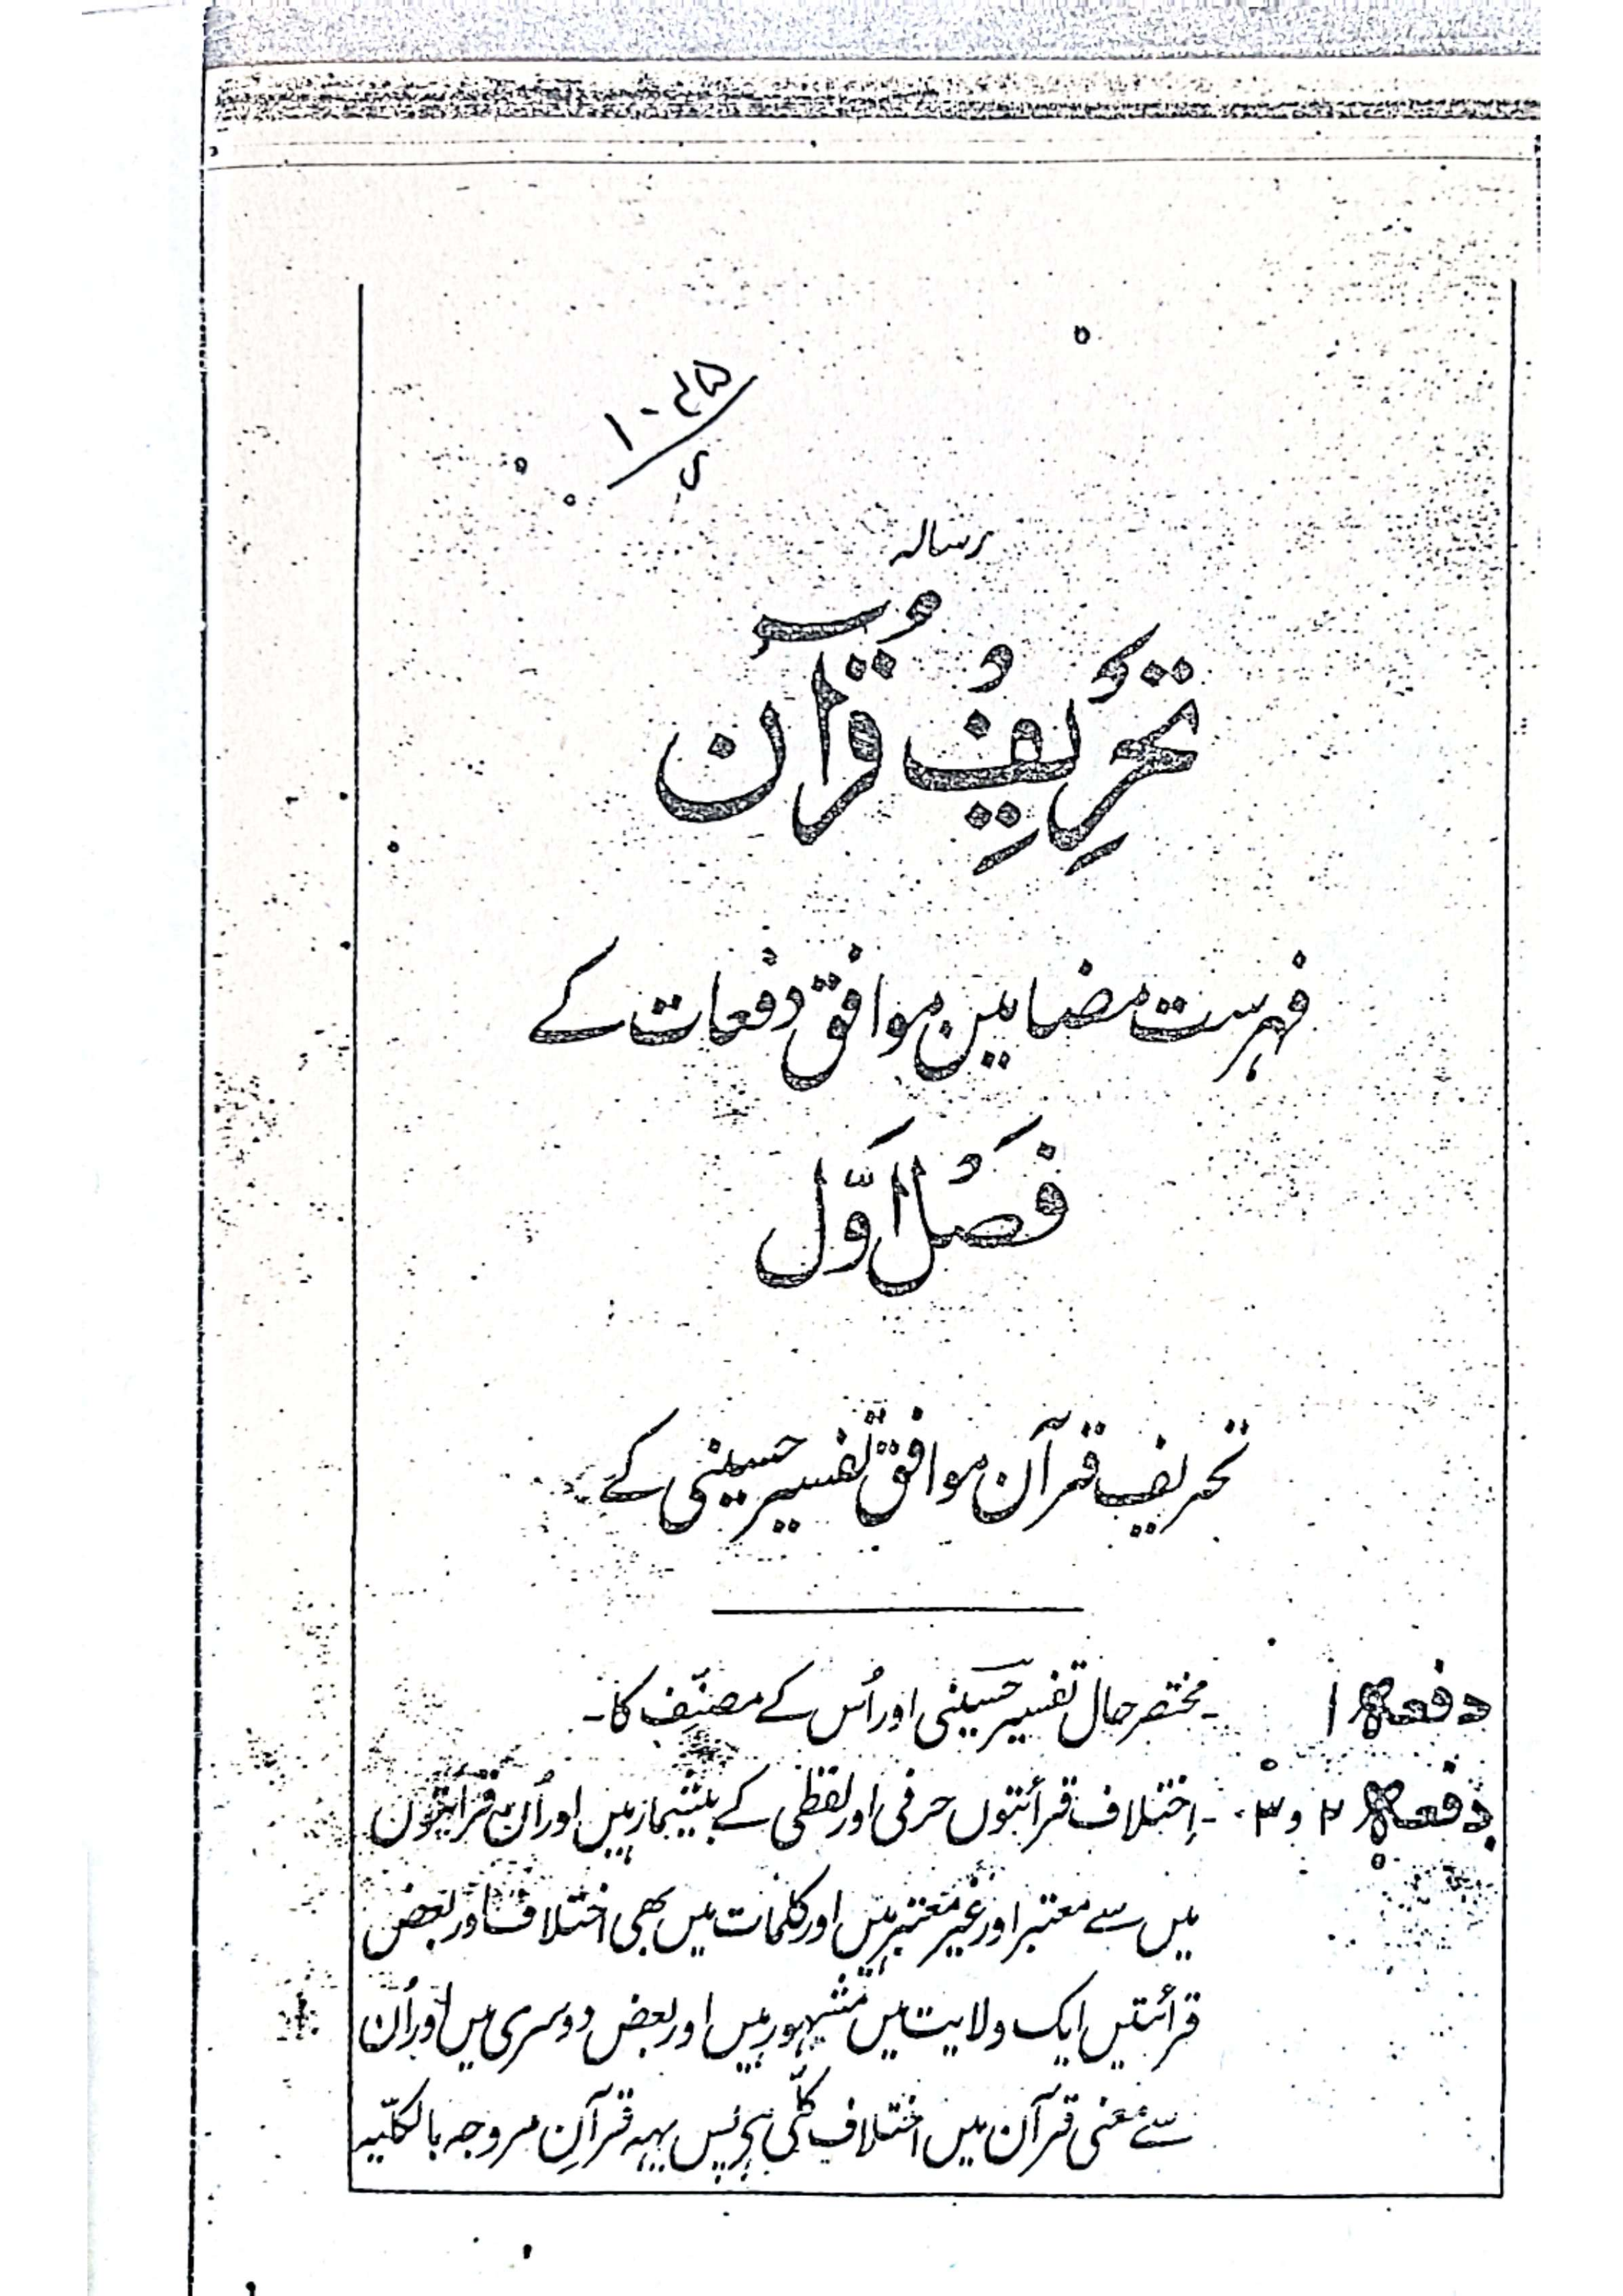 رسالہ
تَحْرِیفِ قُرآن
فہرست مضامین موافق دفعات کے
فَصْل اَوَّل
تحریف قرآن موافق تفسیر حسینی کے
دفعہ ۱ ۔ مختصر حال تفسیر حسینی اور اُس کے مصنّف کا۔
دفعہ ۲ و ۳۔ ۔ اِختلاف قرائتوں حرفی اور لفظی کے بیشمار ہیں اور اُن قرائتوں
میں سے معتبر اور غیر معتبر ہیں اور کلمات میں بھی اختلاف اور بعض
قرائتیں ایک ولایت میں مشہور ہیں اور بعض دوسری میں اور اُن
سے معنی قرآن میں اختلاف کُلّی ہی پس یہہ قرآنِ مروجہ بالکلّیہ